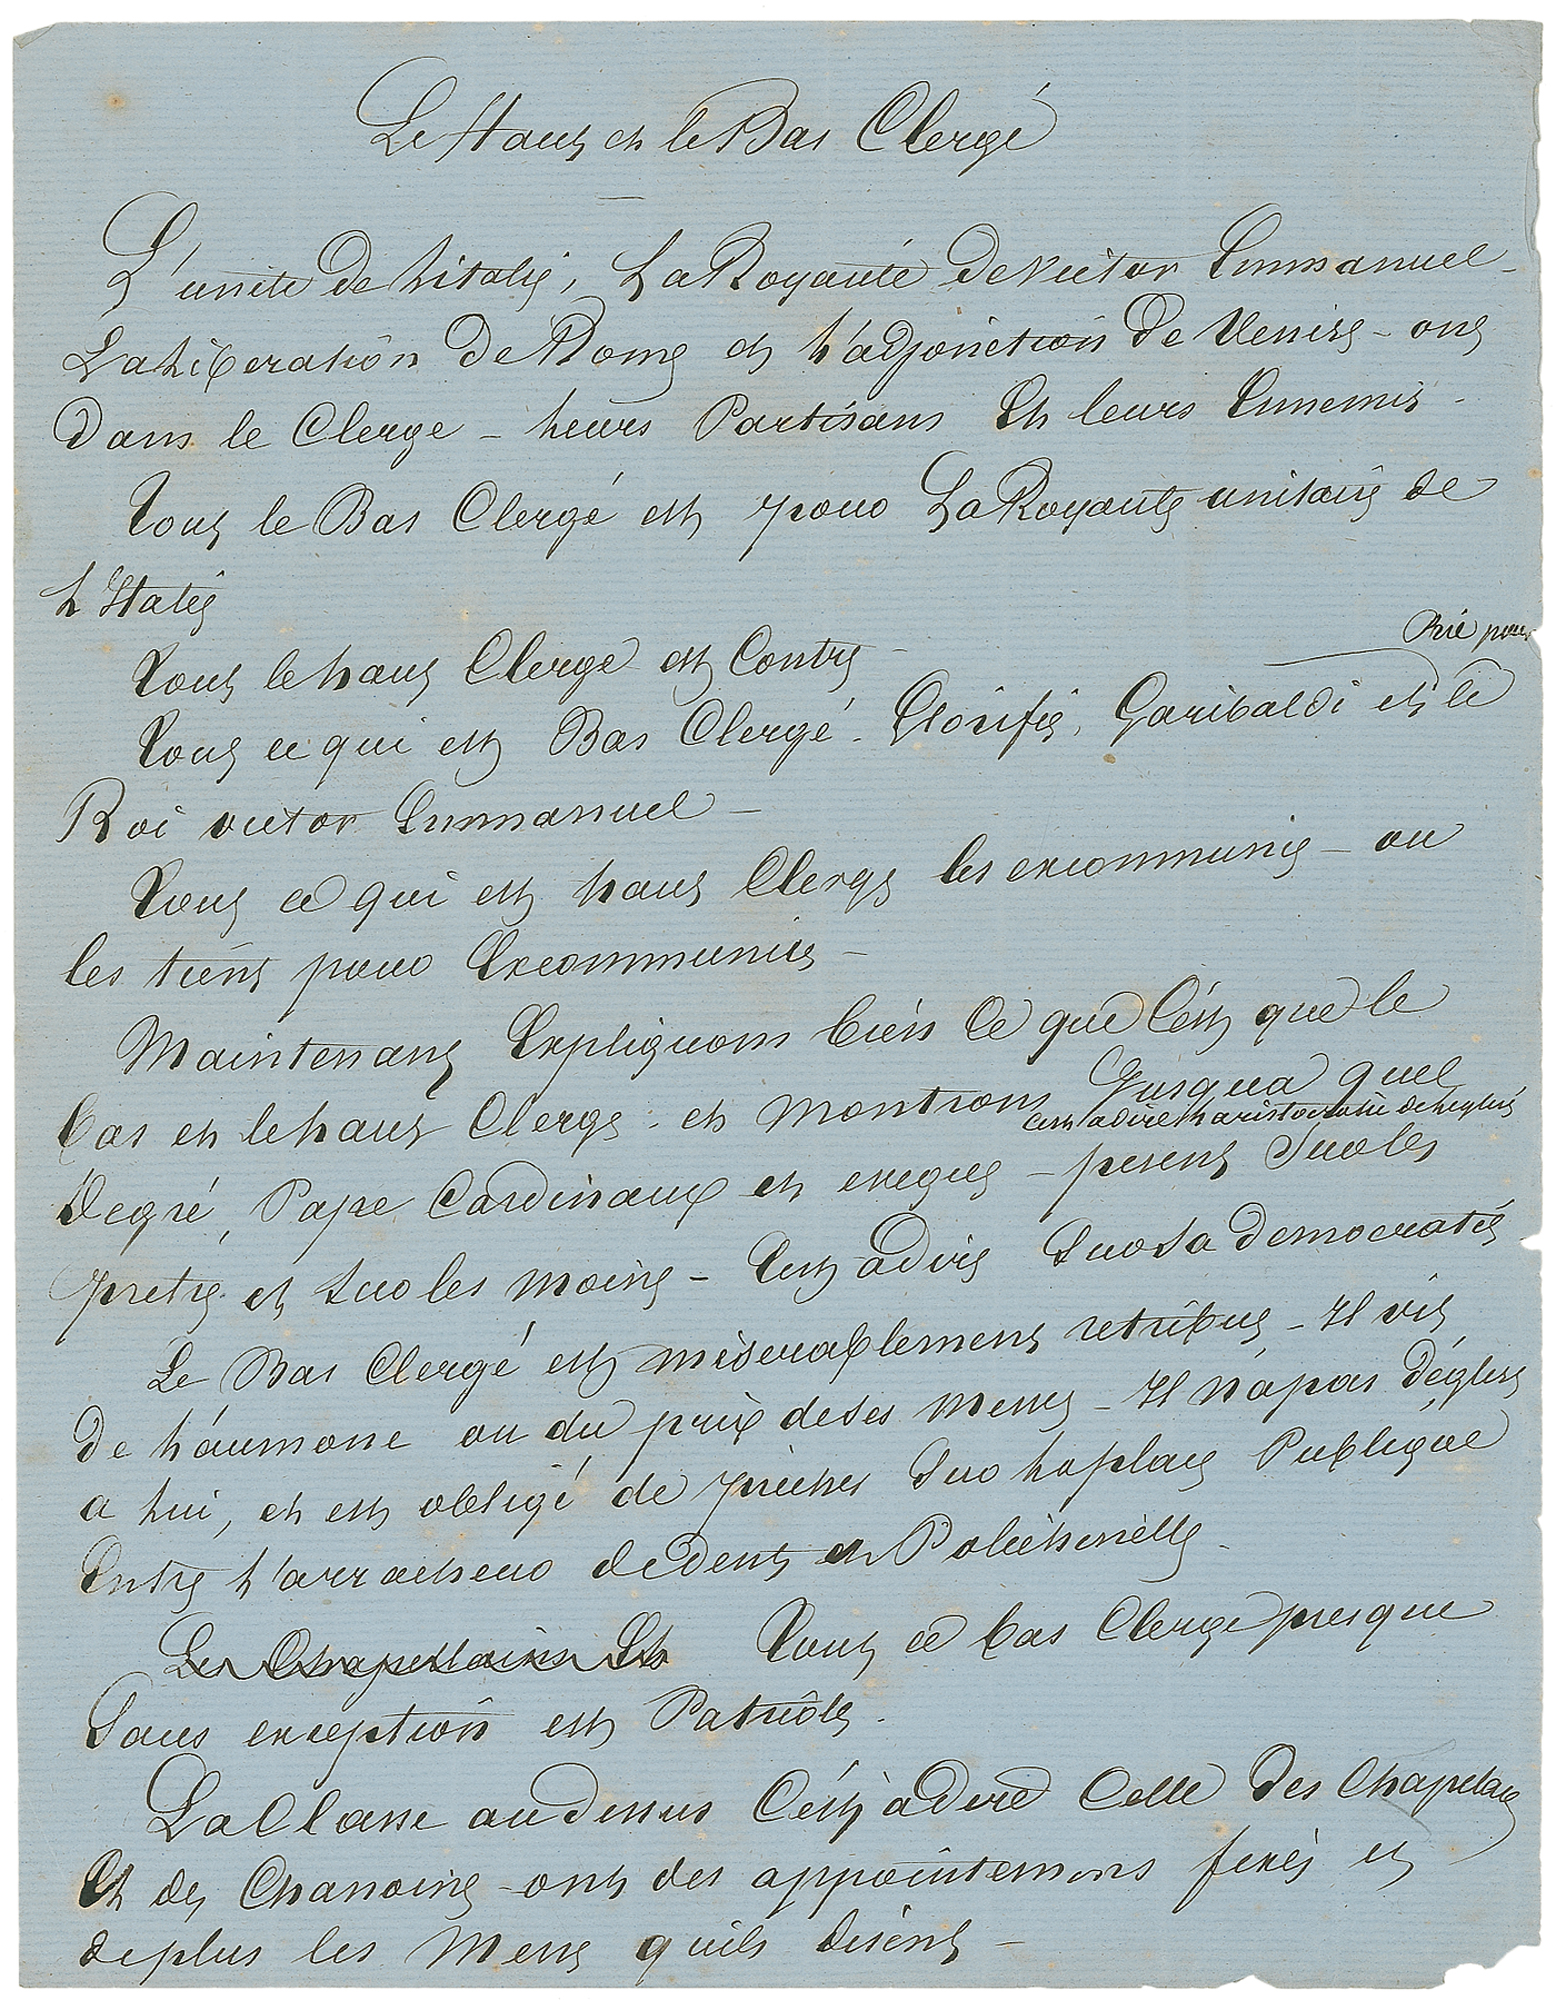 Le Haut et le Bas Clergé
L'unite de Litalie, La Royauté de Victor Emmanuel -
La Liberation de Rome et L'adjonction De Venise - ont
Dans le Clerge - Leurs Partisans Et leurs Ennemis -
Tout le Bas Clergé est pour La Royauté unitaire de
L'Italie
Tout le haut Clerge est Contre -
Prie pour
Tout ce qui est Bas Clergé - Glorifie, Garibaldi et le
Roi victor Emmanuel -
Tout ce qui est haut Clerge les excommunie - ou
les tient pour Excommunies -
Maintenant Expliquons bien Ce que C'est que le
bas et le haut Clerge - et montrons Jusqua quel
cest a dire L'aristocratie de Leglise
Degré, Pape Cardinaux et eveques - pesent Sur les
pretre et Sur les moine - Cest a dire Sur Sa democratie
Le Bas Clergé est miserablement retribue - Il vit
De L'aumone ou du prix de ses Messes - Il n'a pas D'église
a Lui, et est obligé de precher Sur La place Publique
Entre L'arracheur de Dents et Polichinelle -
Les Chapellains Et Tout ce bas Clerge presque
Sans exception est Patriote -
La Classe au dessus C'est a dire Celle Des Chapelains
Et des Chanoine - ont des appointemens fixes et
de plus les Messe quils disent -